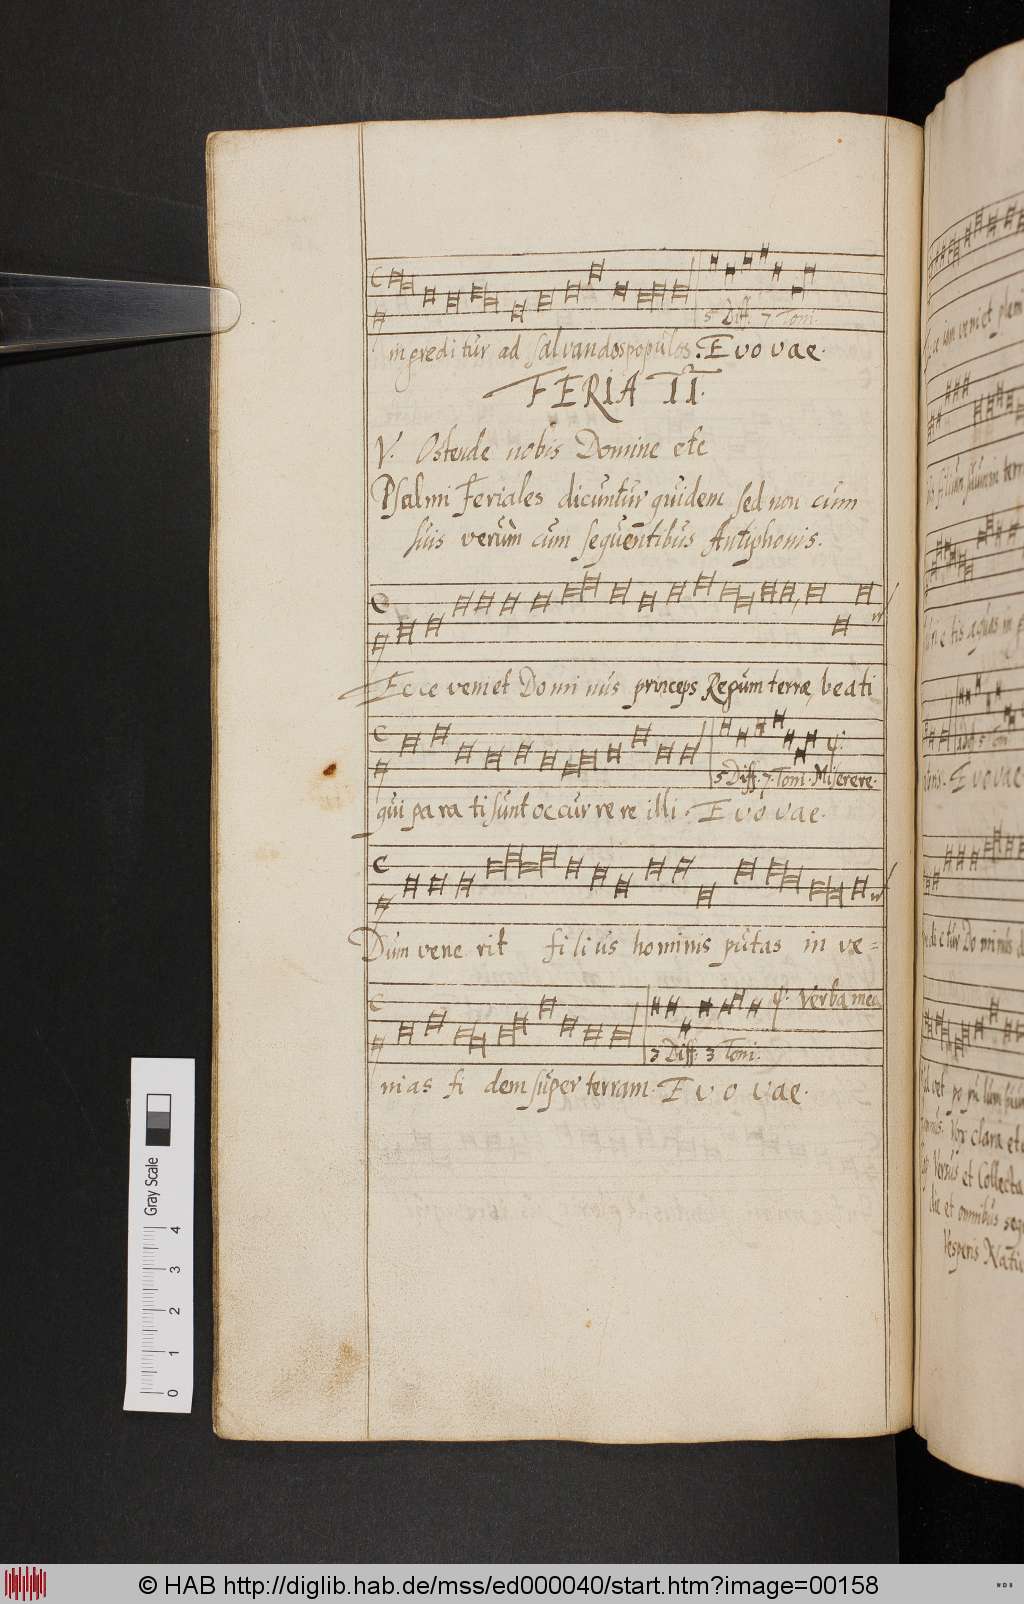 5 Diff. 7 Toni.
ingreditur ad salvandos populos. Evovae.
FERIA II.
V. Ostende nobis Domine etc
Psalmi Feriales dicuntur quidem sed non cum
suis verum cum sequentibus Antiphonis.
Ecce veniet Dominus princeps Regum terrae, beati
5 Diff. 7. Toni. Miserere.
qui parati sunt occurrere illi. Evovae.
Dum venerit filius hominis putas in ve=
Verba mea
3 Diff. 3 Toni.
nias fidem super terram. Evovae.
Evovae
clara et
Versus et Collecta
et omnibus
Vesperis
Gray Scale
4
3
2
1
0
© HAB http://diglib.hab.de/mss/ed000040/start.htm?image=00158